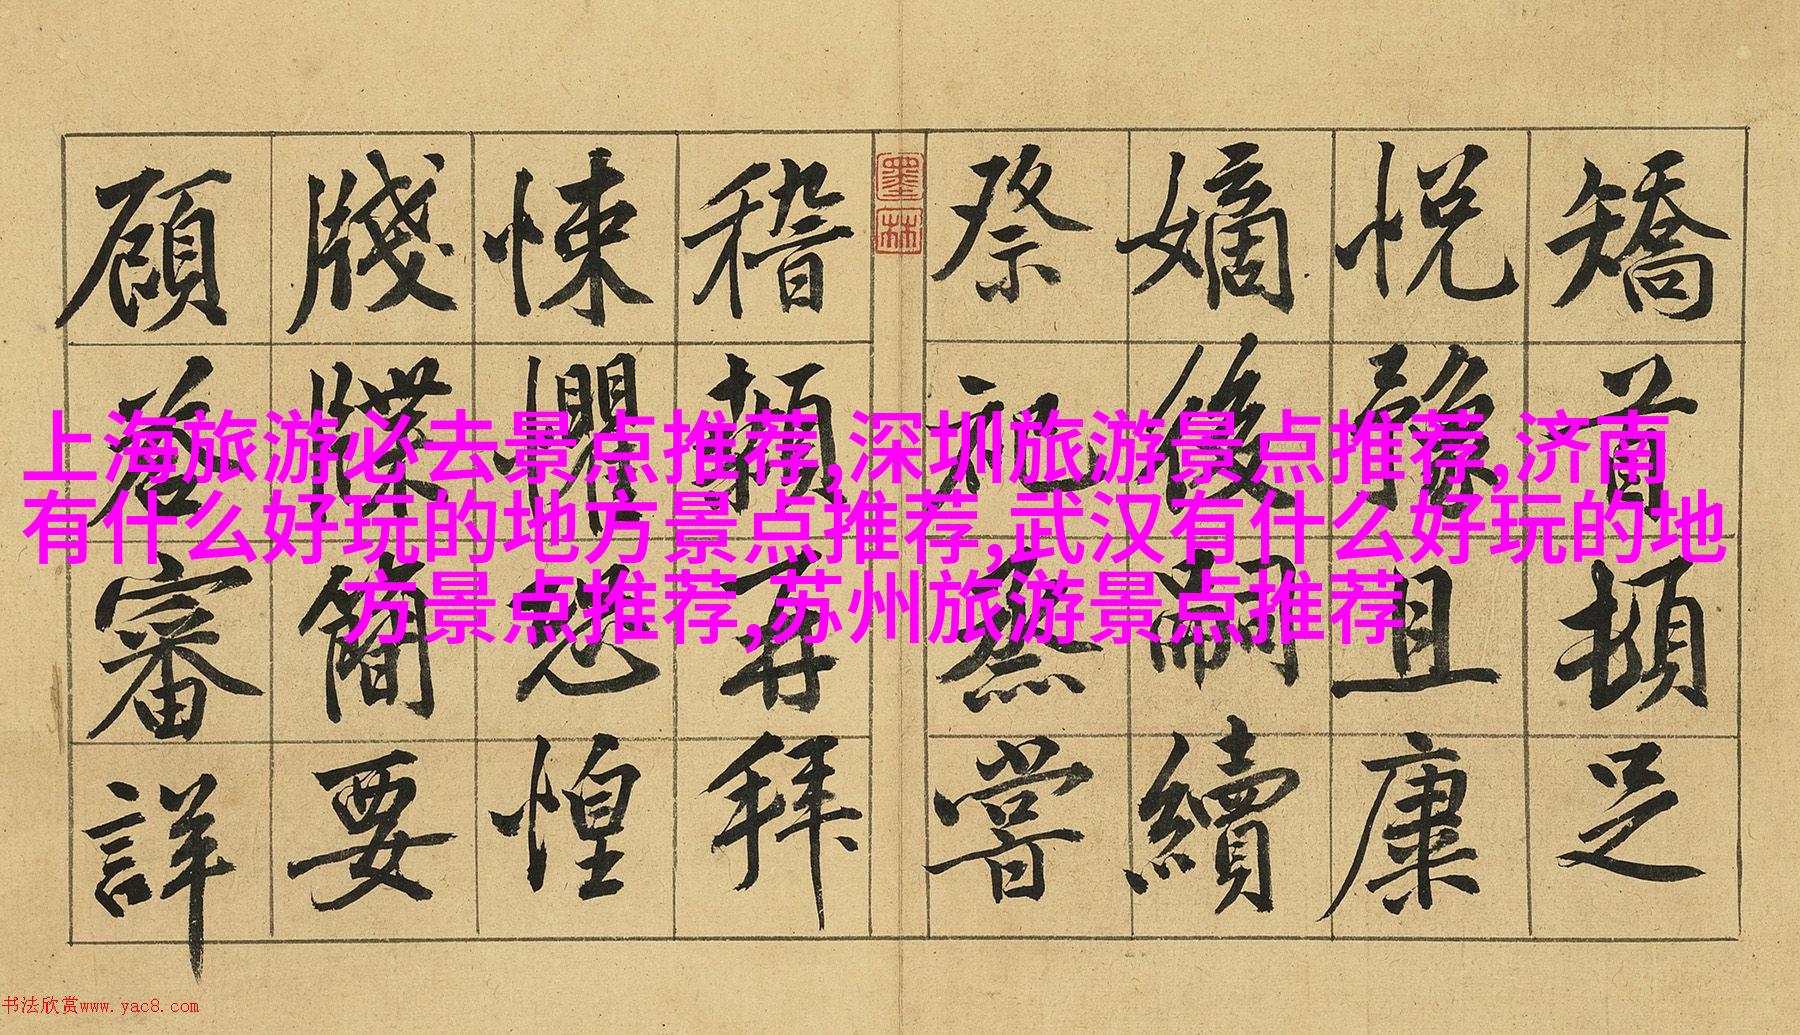 矯首頓足
悅豫且康
嫡後嗣續
祭祀蒸嘗
墨林
稽顙再拜
悚懼恐惶
牋牒簡要
顧答審詳
上海旅游必去景点推荐,深圳旅游景点推荐,济南
有什么好玩的地方景点推荐,武汉有什么好玩的地
方景点推荐,苏州旅游景点推荐
书法欣赏www.yac8.com